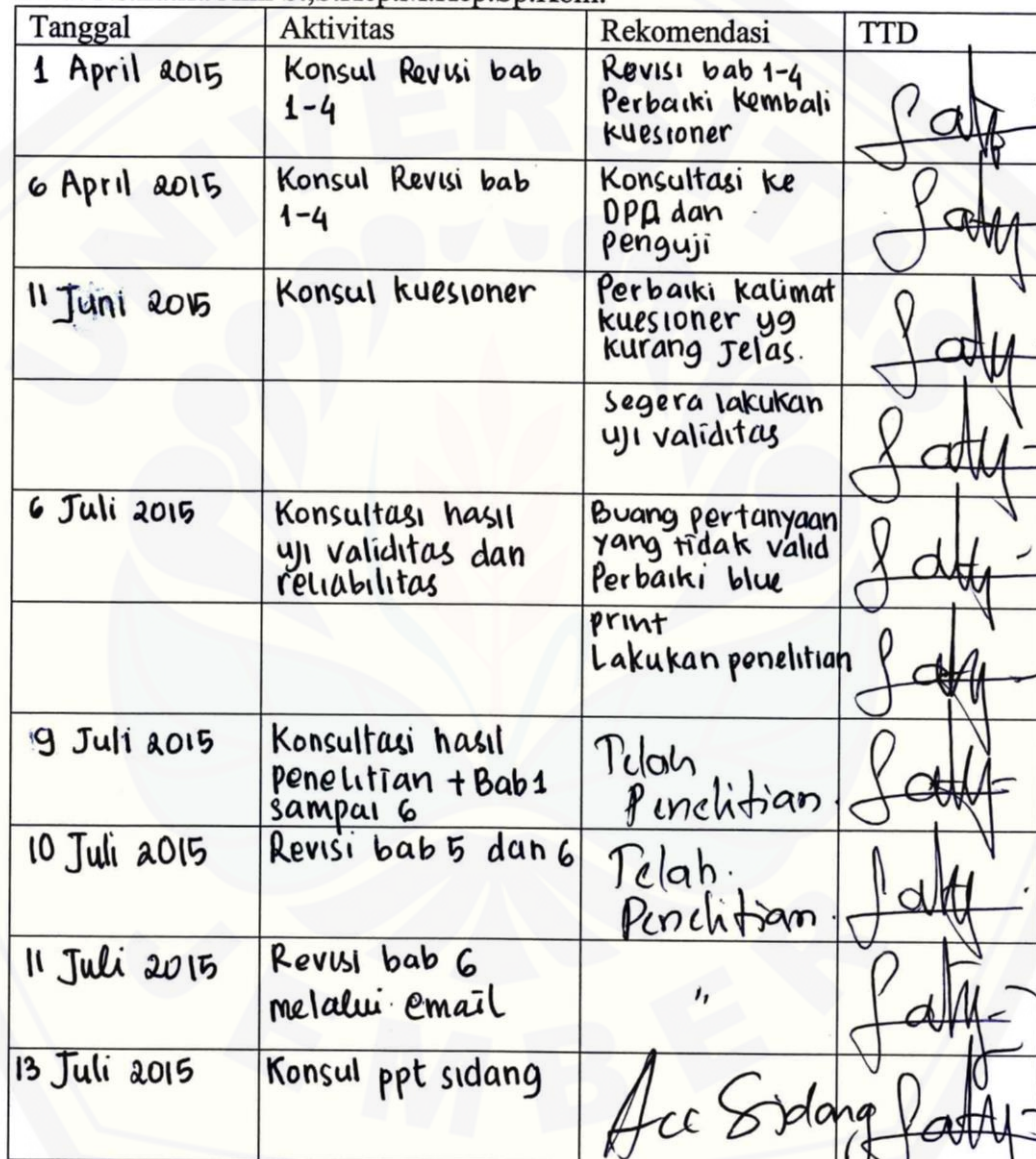 Tanggal Aktivitas Rekomendasi TTD
1 April 2015 Konsul Revisi bab Revisi bab 1-4
1-4 Perbaiki Kembali
kuesioner
6 April 2015 Konsul Revisi bab Konsultasi ke
1-4 DPA dan
Penguji
11 Juni 2015 Konsul kuesioner Perbaiki kalimat
kuesioner yg
kurang Jelas.
segera lakukan
uji validitas
6 Juli 2015 Konsultasi hasil Buang pertanyaan
uji validitas dan yang tidak valid
reliabilitas Perbaiki blue
print
Lakukan penelitian
9 Juli 2015 Konsultasi hasil Telah
penelitian + Bab 1 Penelitian
sampai 6
10 Juli 2015 Revisi bab 5 dan 6 Telah.
Penelitian.
11 Juli 2015 Revisi bab 6 "
melalui email
13 Juli 2015 Konsul ppt sidang Acc Sidang
UNIVERSITAS